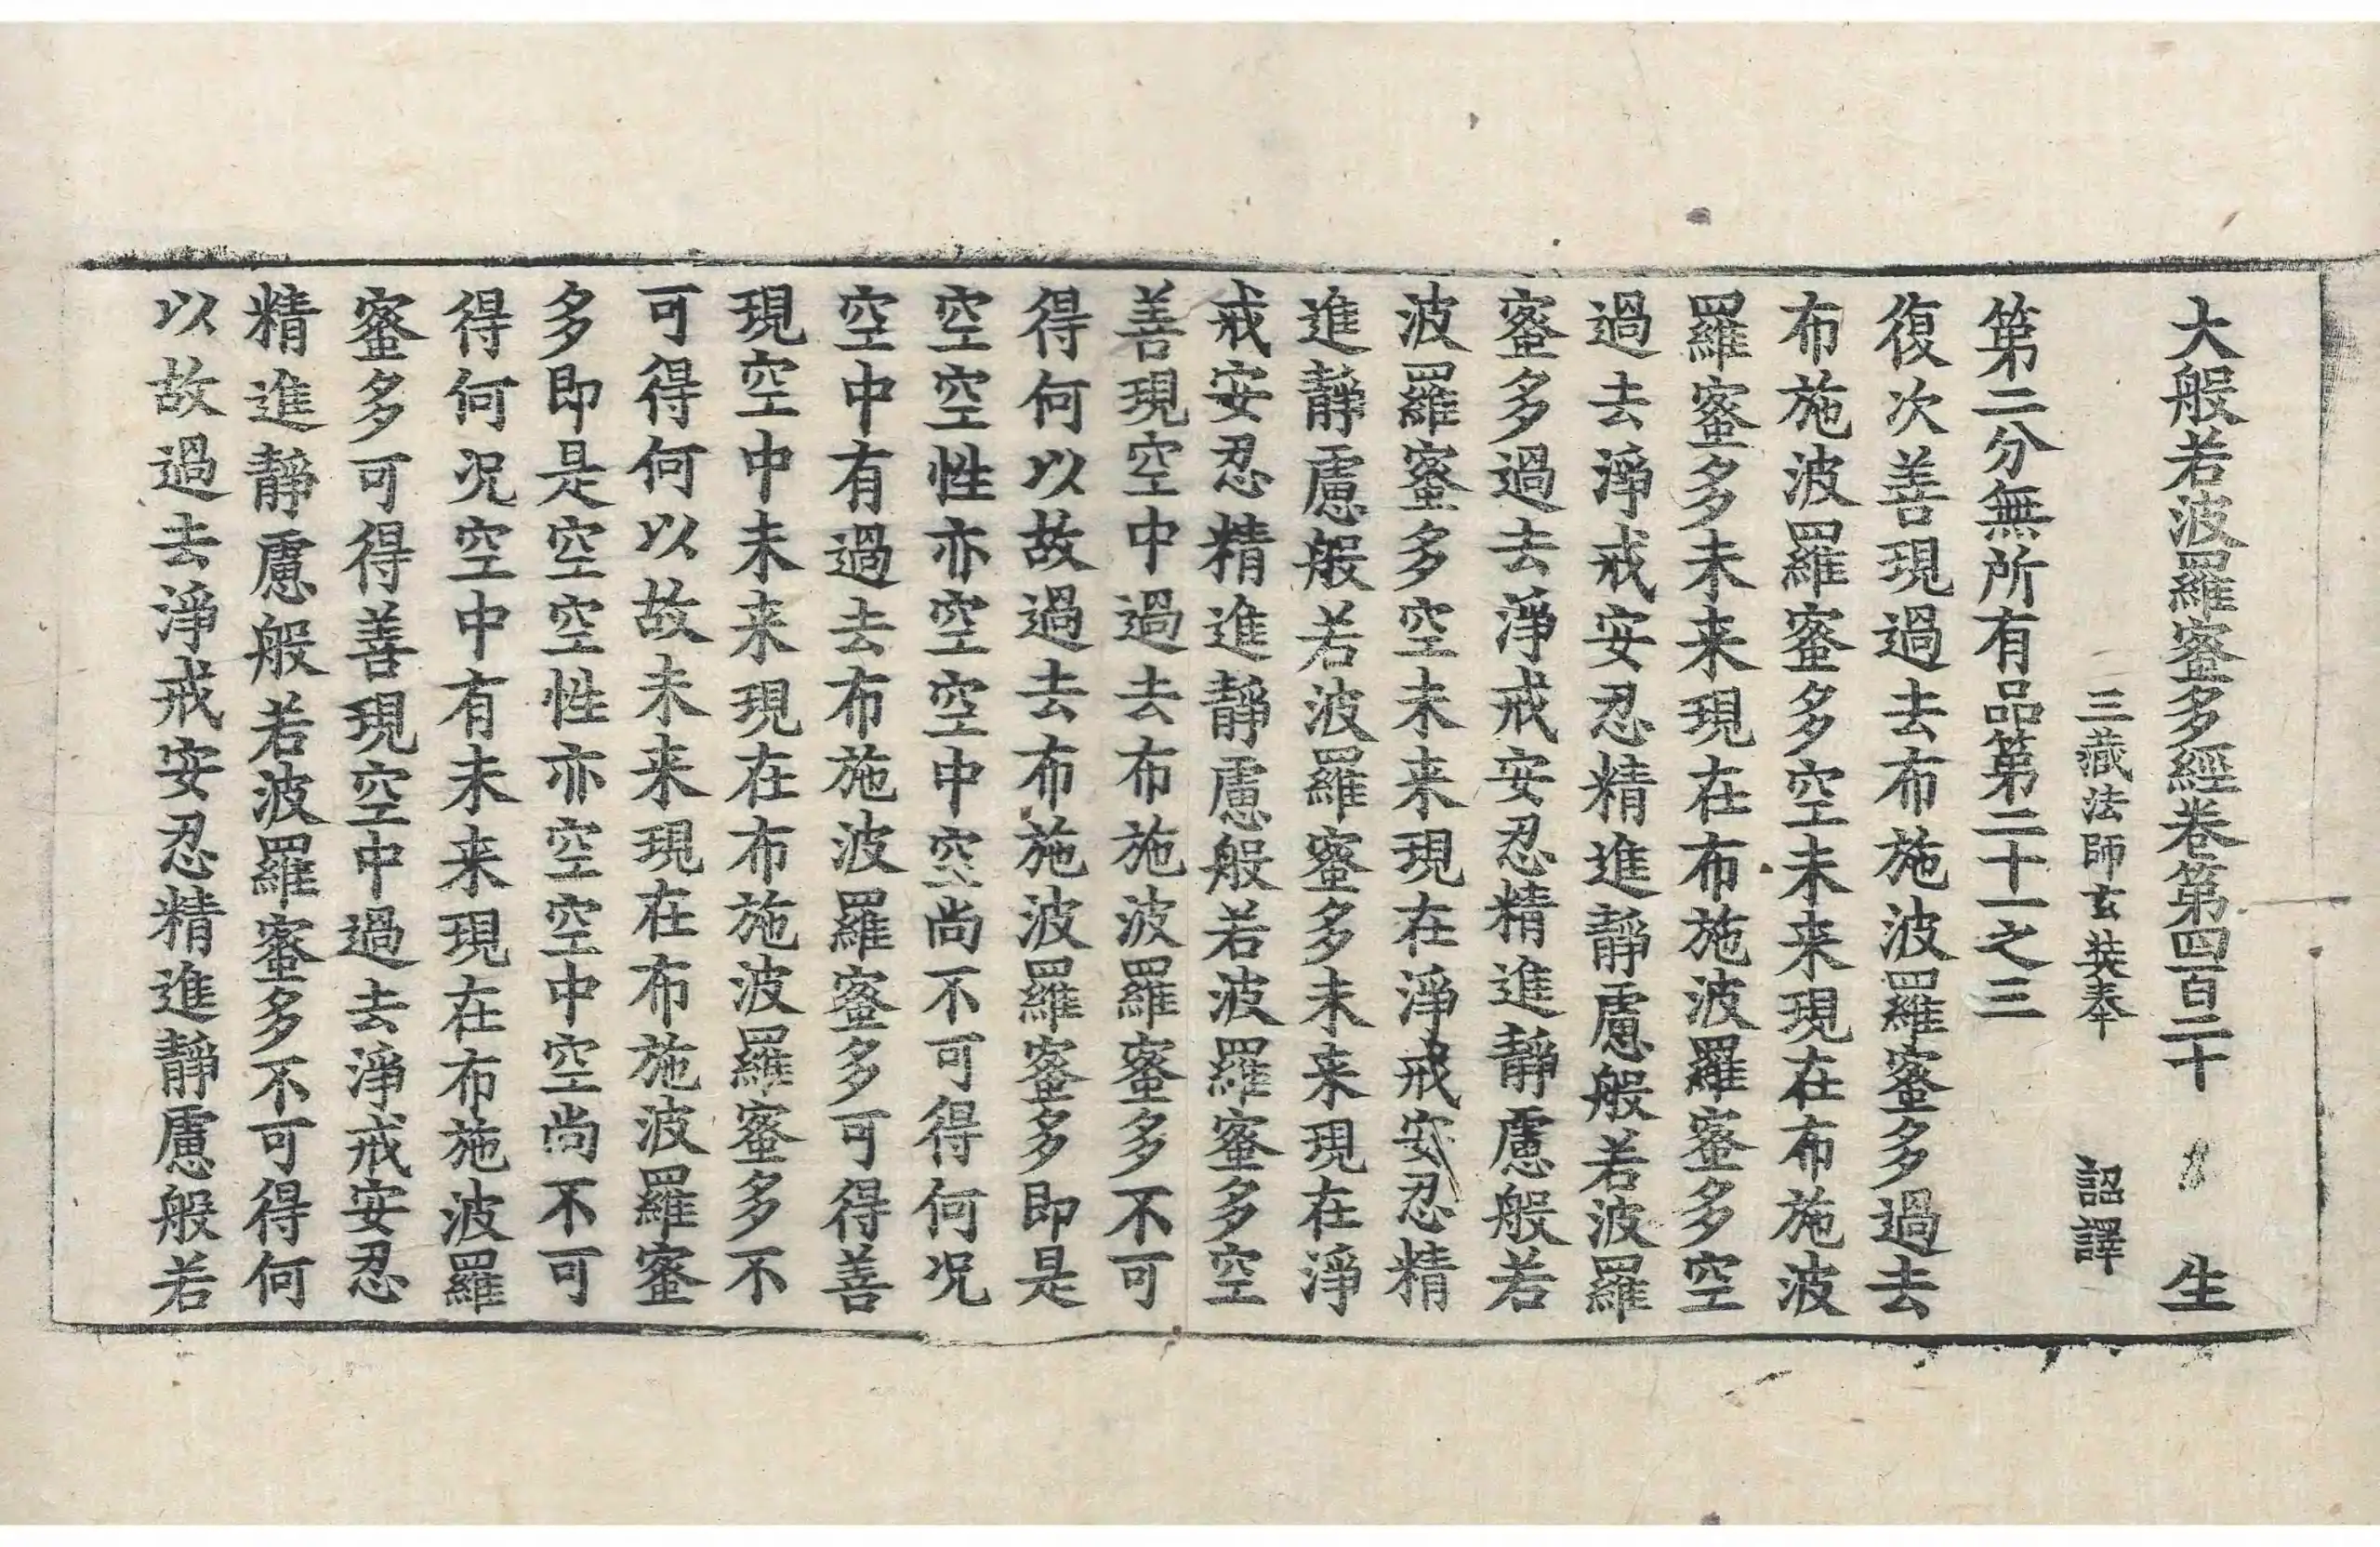 大般若波羅蜜多經卷第四百二十　生
三藏法師玄奘奉　詔譯
第二分無所有品第二十一之三
復次善現過去布施波羅蜜多過去
布施波羅蜜多空未来現在布施波
羅蜜多未来現在布施波羅蜜多空
過去淨戒安忍精進靜慮般若波羅
蜜多過去淨戒安忍精進靜慮般若
波羅蜜多空未来現在淨戒安忍精
進靜慮般若波羅蜜多未来現在淨
戒安忍精進靜慮般若波羅蜜多空
善現空中過去布施波羅蜜多不可
得何以故過去布施波羅蜜多即是
空空性亦空空中空尚不可得何况
空中有過去布施波羅蜜多可得善
現空中未来現在布施波羅蜜多不
可得何以故未来現在布施波羅蜜
多即是空空性亦空空中空尚不可
得何况空中有未来現在布施波羅
蜜多可得善現空中過去淨戒安忍
精進靜慮般若波羅蜜多不可得何
以故過去淨戒安忍精進靜慮般若